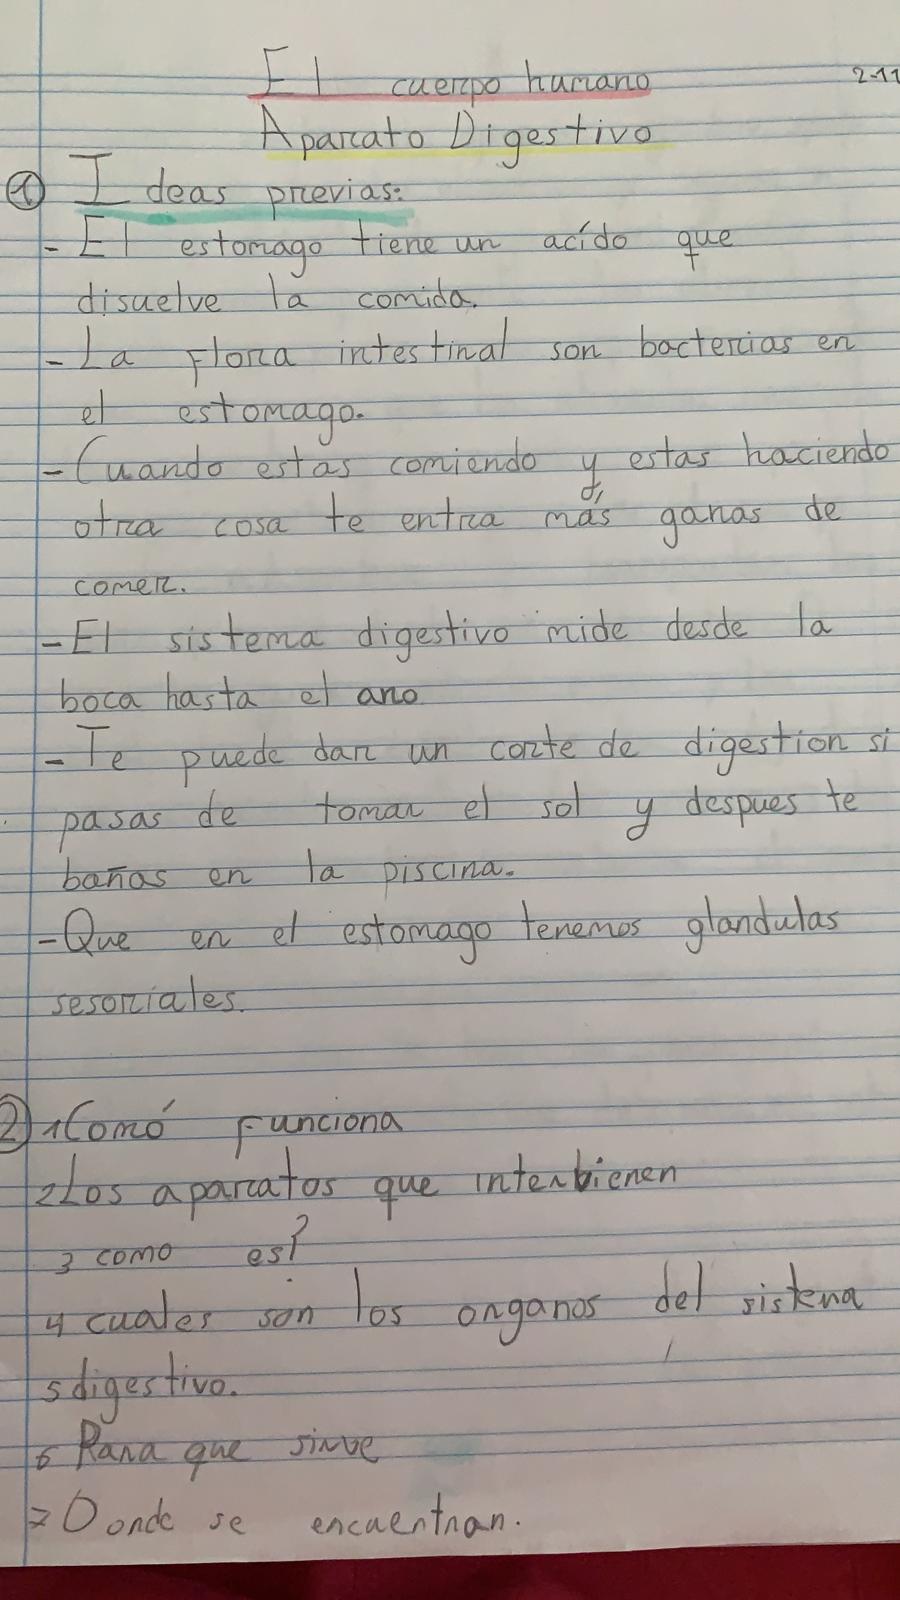 El cuerpo humano 2-11
Aparato Digestivo
① Ideas previas:
- El estomago tiene un acído que
disuelve la comida.
- La flora intestinal son bacterias en
el estomago.
- Cuando estas comiendo y estas haciendo
otra cosa te entra más ganas de
comer.
- El sistema digestivo mide desde la
boca hasta el ano
- Te puede dar un corte de digestion si
pasas de tomar el sol y despues te
bañas en la piscina.
- Que en el estomago tenemos glandulas
sesoriales.
② 1 Comó funciona
2 Los aparatos que interbienen
3 como es?
4 cuales son los organos del sistema
5 digestivo.
6 Para que sirve
7 Donde se encuentran.